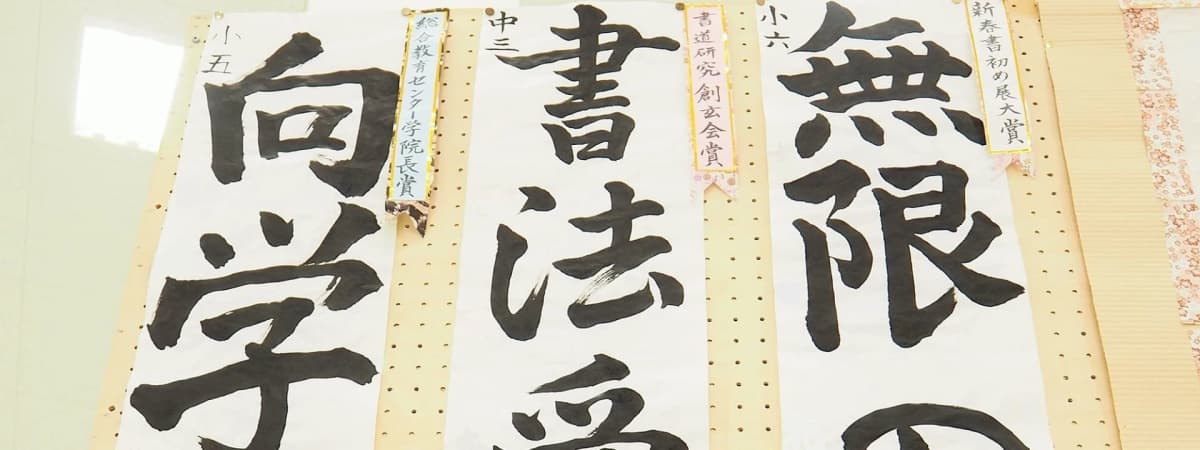 新春書初め展大賞
小六
無限の
書道研究 創玄会賞
中三
書法
総合教育センター学院長賞
小五
向学